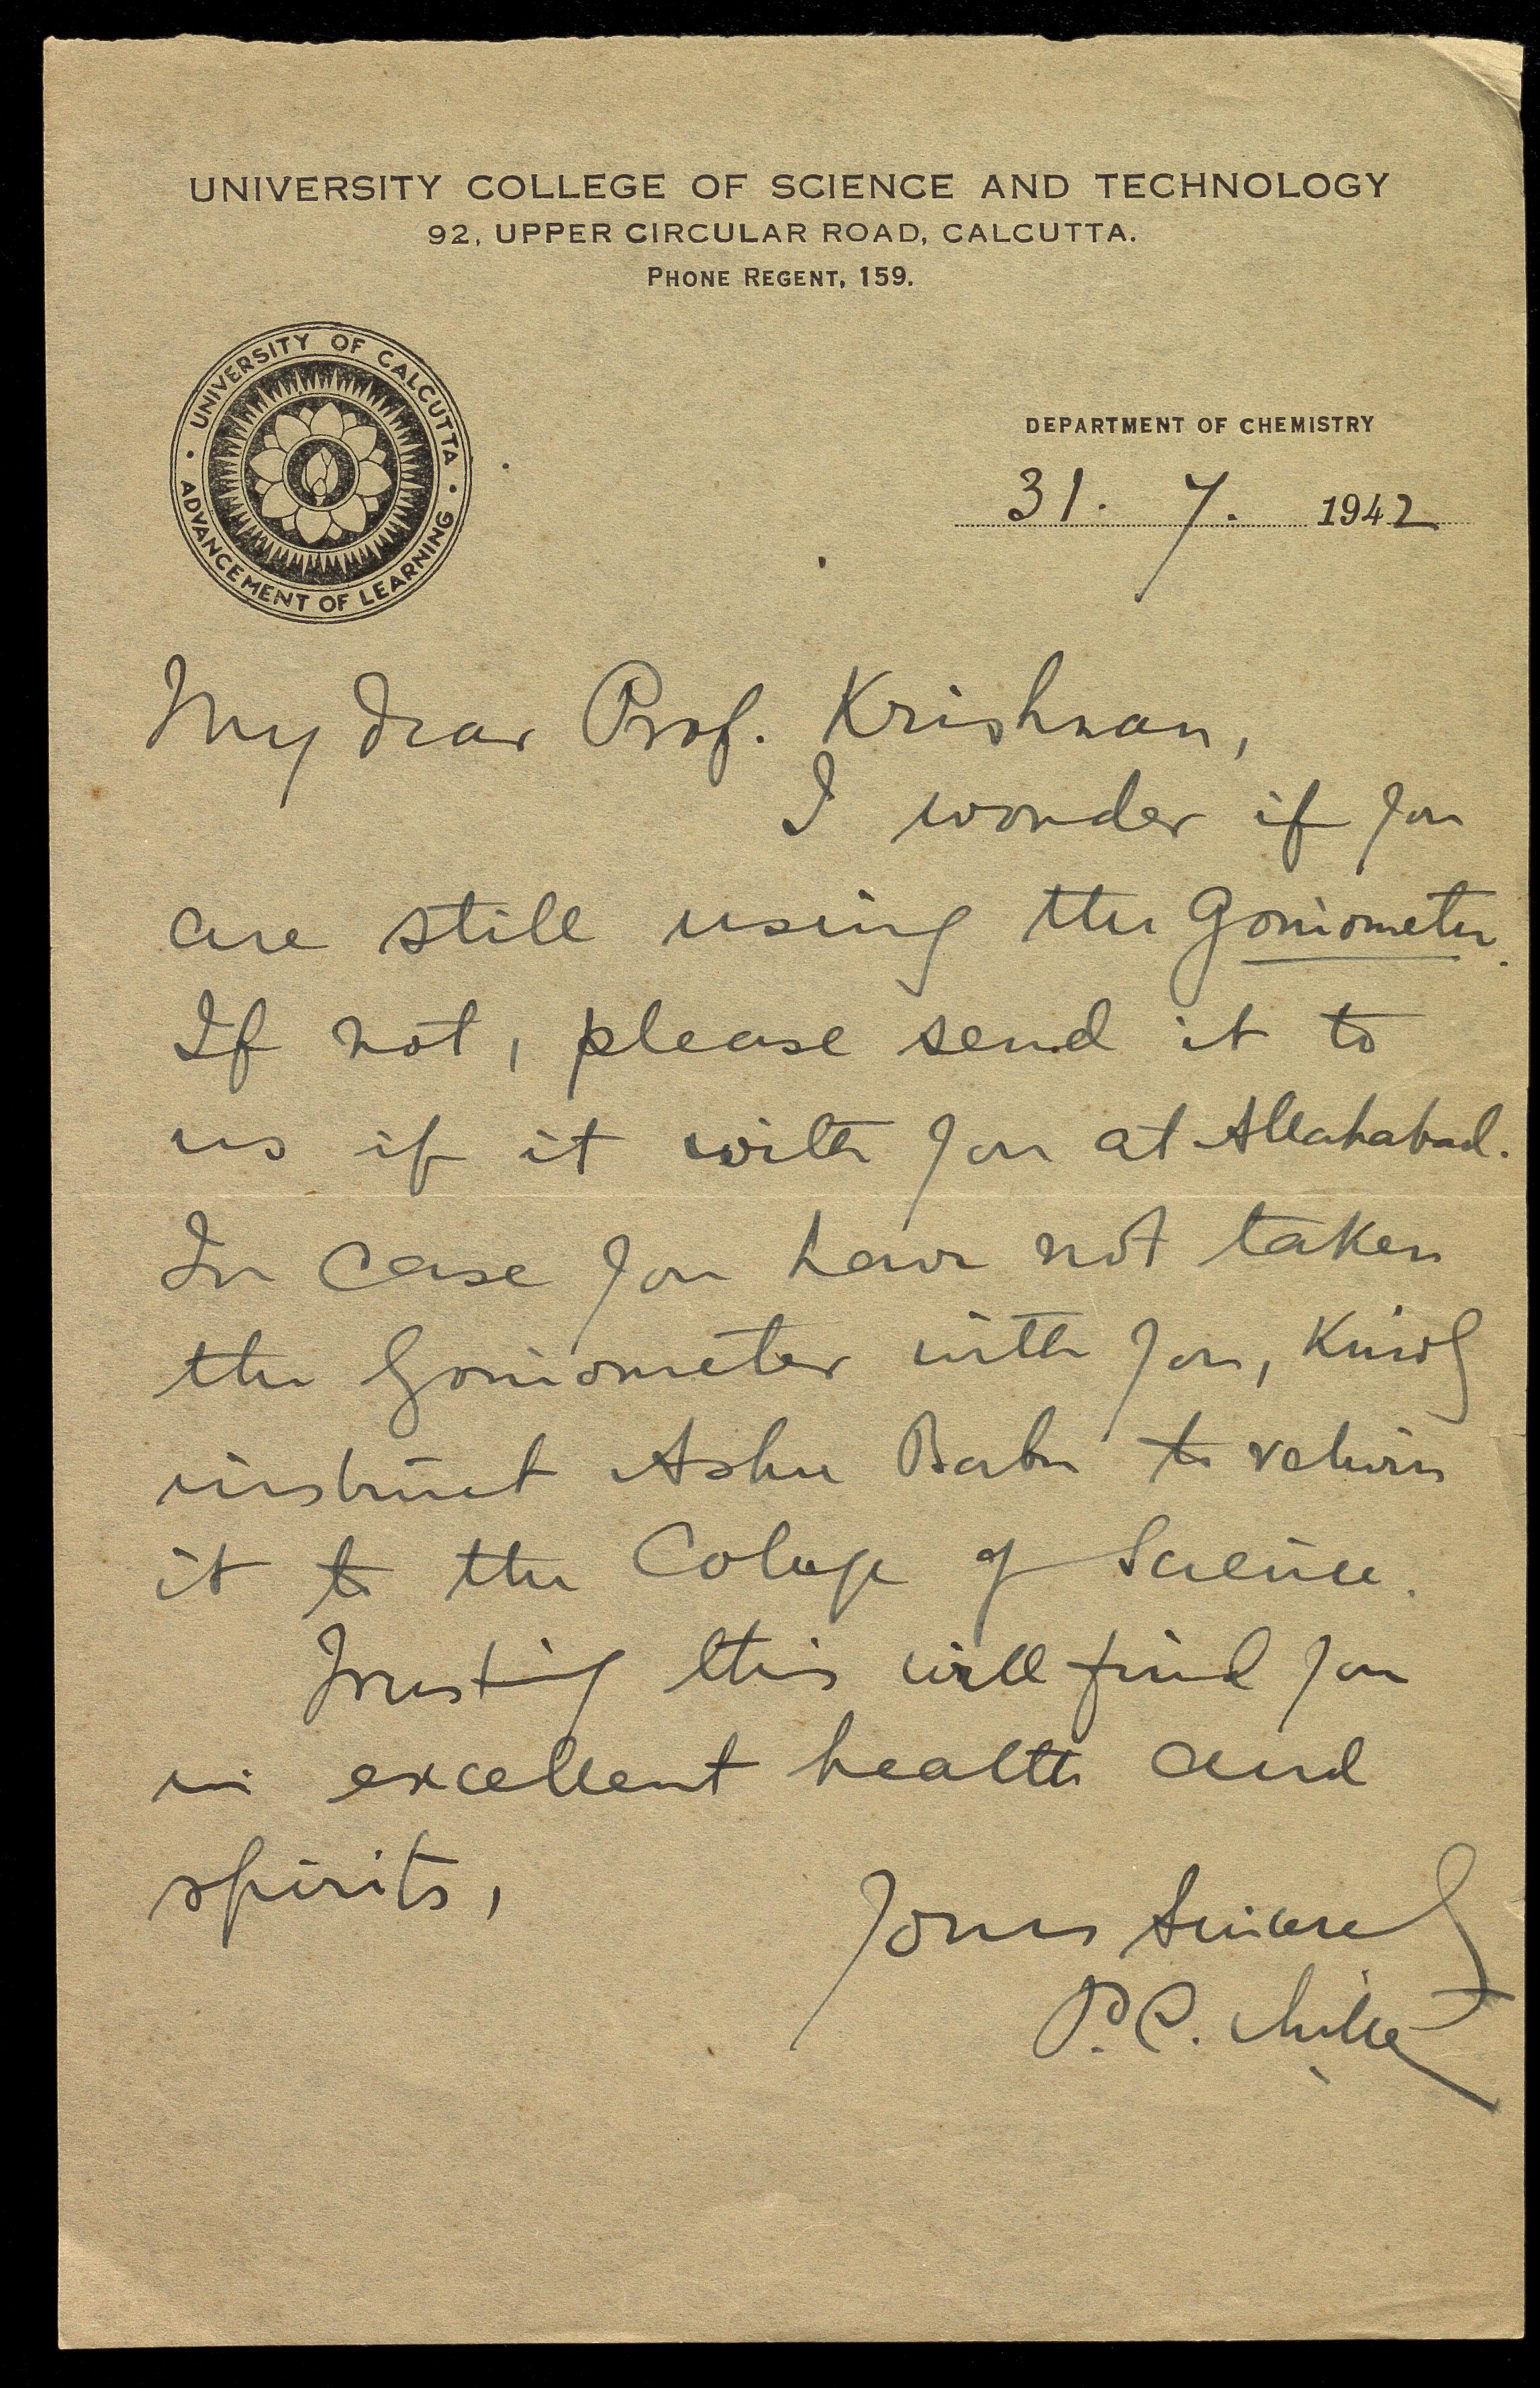 UNIVERSITY COLLEGE OF SCIENCE AND TECHNOLOGY
92, UPPER CIRCULAR ROAD, CALCUTTA.
PHONE REGENT, 159.
UNIVERSITY OF CALCUTTA
ADVANCEMENT OF LEARNING
DEPARTMENT OF CHEMISTRY
31. 7. 1942
My dear Prof. Krishnan,
I wonder if you
are still using the Goniometer.
If not, please send it to
us if it with you at Allahabad.
In case you have not taken
the Goniometer with you, kindly
instruct Ashu Babu to return
it to the College of Science.
Trusting this will find you
in excellent health and
spirits,
Yours Sincerely
P.C. Mitter